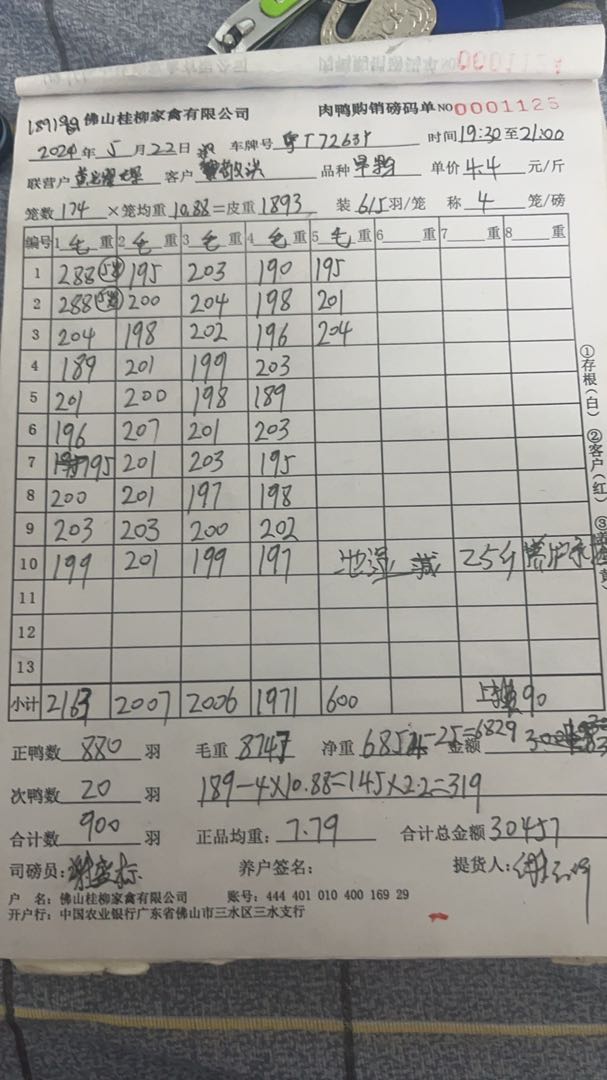 佛山桂柳家禽有限公司 肉鸭购销磅码单 NO 0001125
2024年 5月22日 车牌号 粤T7263 时间 19:30至21:00
联营户 客户 品种 早鸭 单价 4.4 元/斤
笼数 174 ×笼均重 10.88=皮重 1893 装 6.5羽/笼 称 4 笼/磅
编号 1 毛 重 2 毛 重 3 毛 重 4 毛 重 5 毛 重 6 重 7 重 8 重
1 288 195 203 190 195
2 288 200 204 198 201
3 204 198 202 196 204
4 189 201 199 203
5 201 200 198 189
6 196 207 201 203
7 195 201 203 195
8 200 201 197 198
9 203 203 200 202
10 199 201 199 197 减 25斤
11
12
13
小计 2163 2007 2006 1971 600 90
正鸭数 880 羽 毛重 8747 净重 6854-25=6829 金额
次鸭数 20 羽 189-4×10.88=145×2.2=319
合计数 900 羽 正品均重: 7.79 合计总金额 30457
司磅员: 养户签名: 提货人:
户 名: 佛山桂柳家禽有限公司 账号: 444 401 010 400 169 29
开户行: 中国农业银行广东省佛山市三水区三水支行
①存根(白) ②客户(红) ③